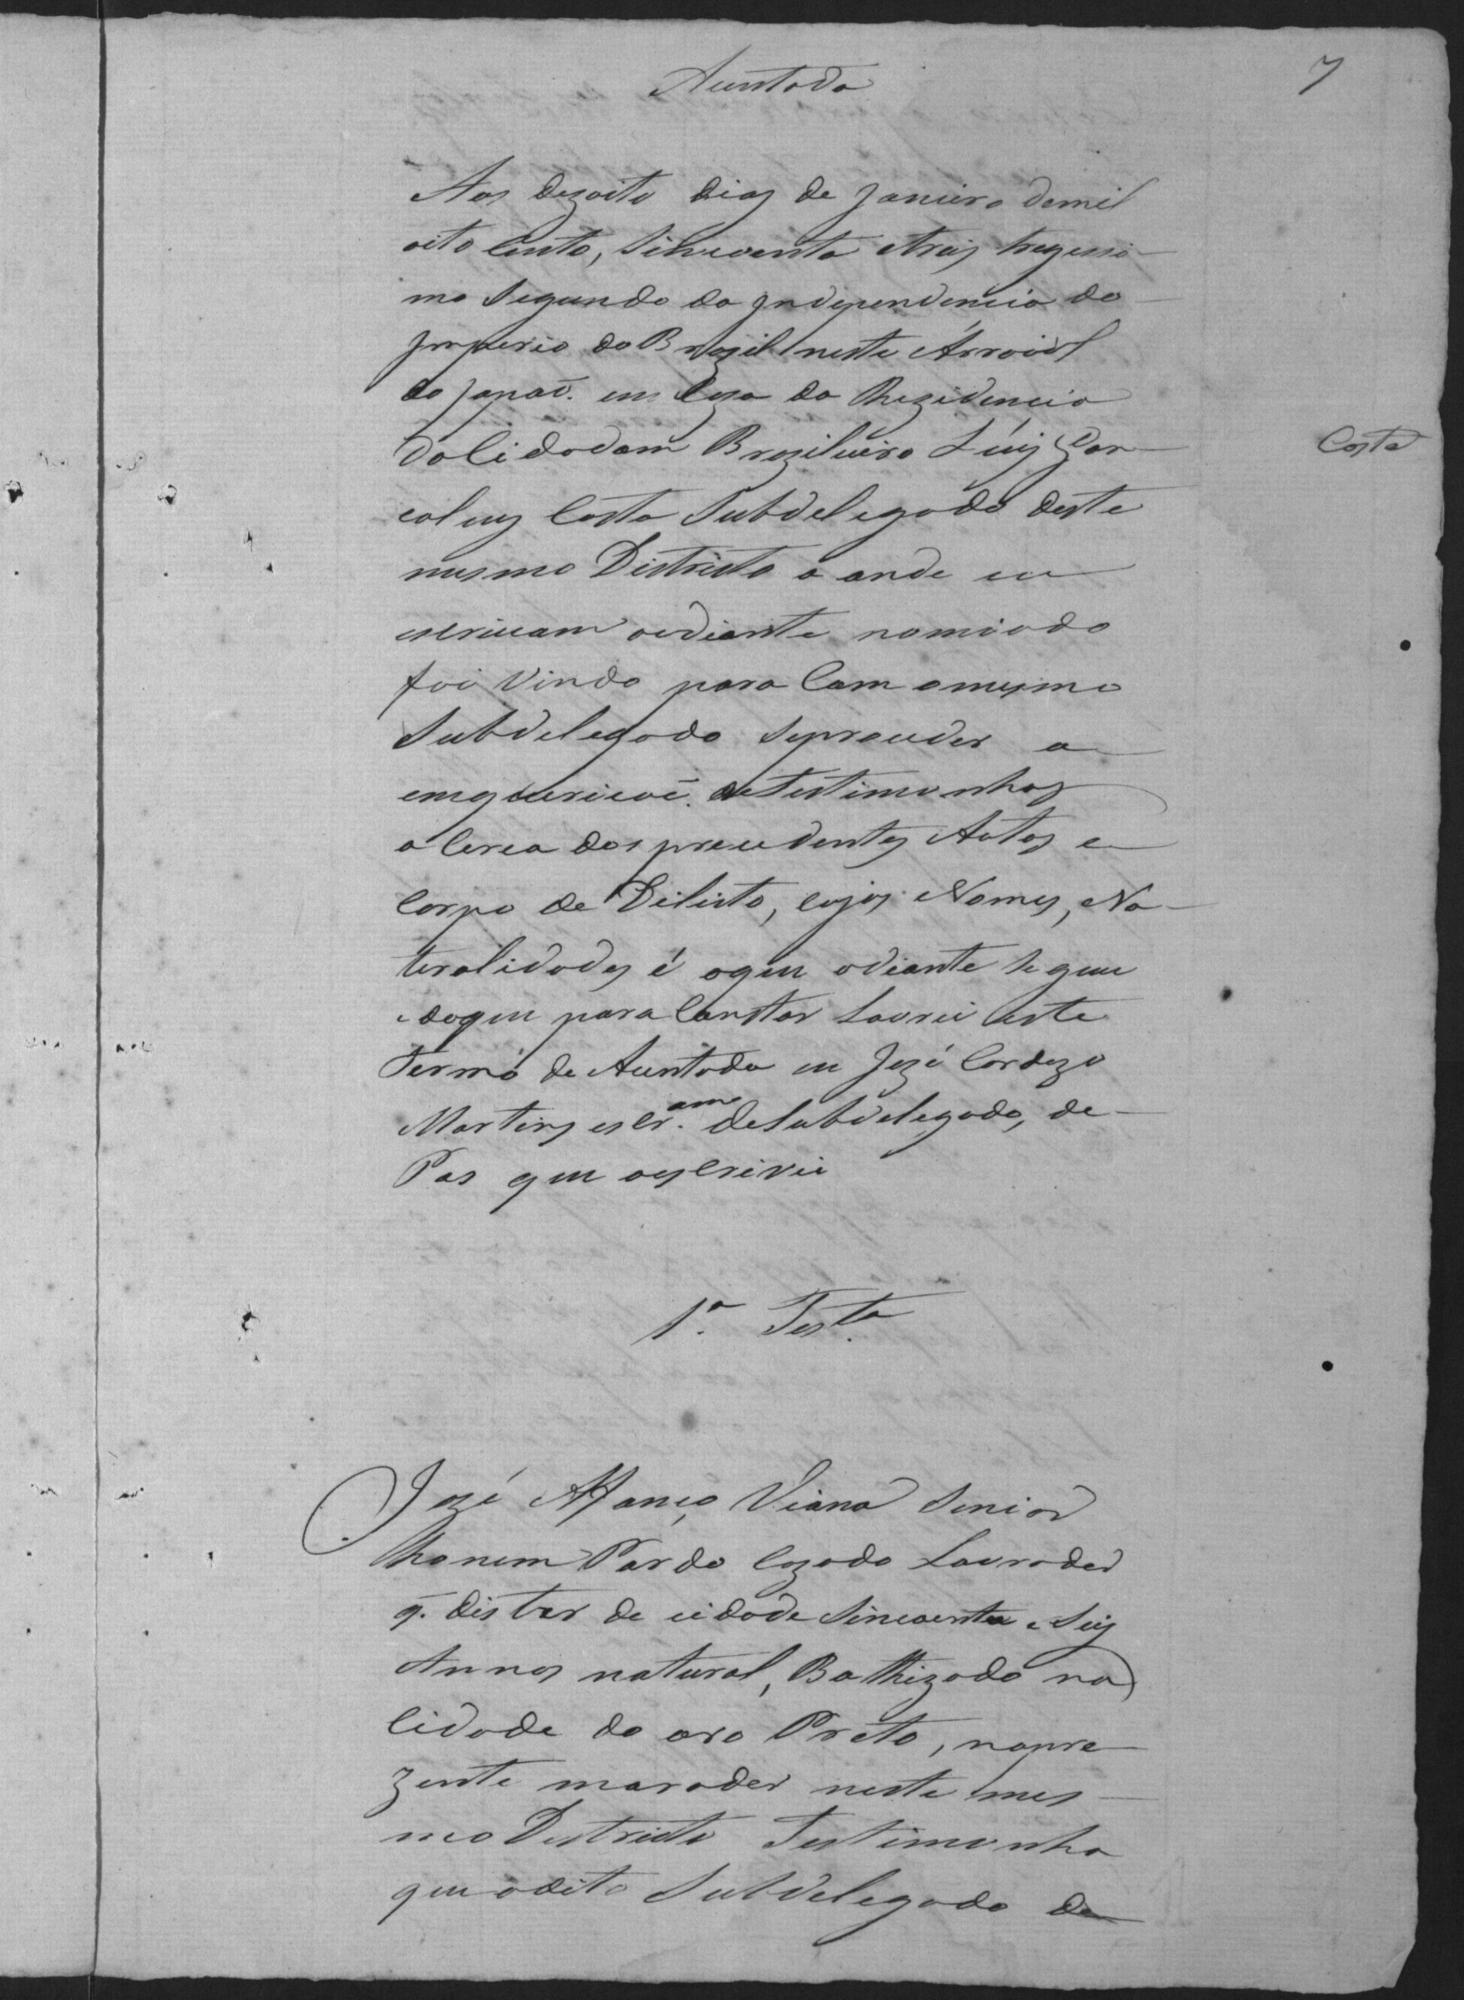 Auntada
7
Aos dezoito dias de Janeiro demil
oito cento, sincoenta etreis tregessi-
mo segundo da Independencia do
Imperio do Brazil neste Arraial
do em Caza da Rezidencia
doCidadam Brazileiro Luis Gon-
Costa
calves Costa Subdelegado deste
mesmo Districto a onde eu
escrivam aodiante nomiado
foi vindo para Com omesmo
Subdelegado seproceder a
emquericaõ de Testimunhas
a Cerca dos precedentes Autos e
Corpo de Delicto, cujos Nomes, Na-
teralidades é oque adiante segue
edoque para Constar Lavrei este
Termo de Auntada eu José Cardozo
Martins escr.am deSubdelegado, de-
Pas que oescrivii
1.a Test.a
Jozé Affonço Viana Senior
homem Pardo cazado Lavrador
q. disse ter de cidade Sincoenta e Seis
Annos natural, Bathizado na
Cidade do oro Preto, nopre-
zente morador neste mes-
mo Districto Testimunha
que odito Subdelegado de